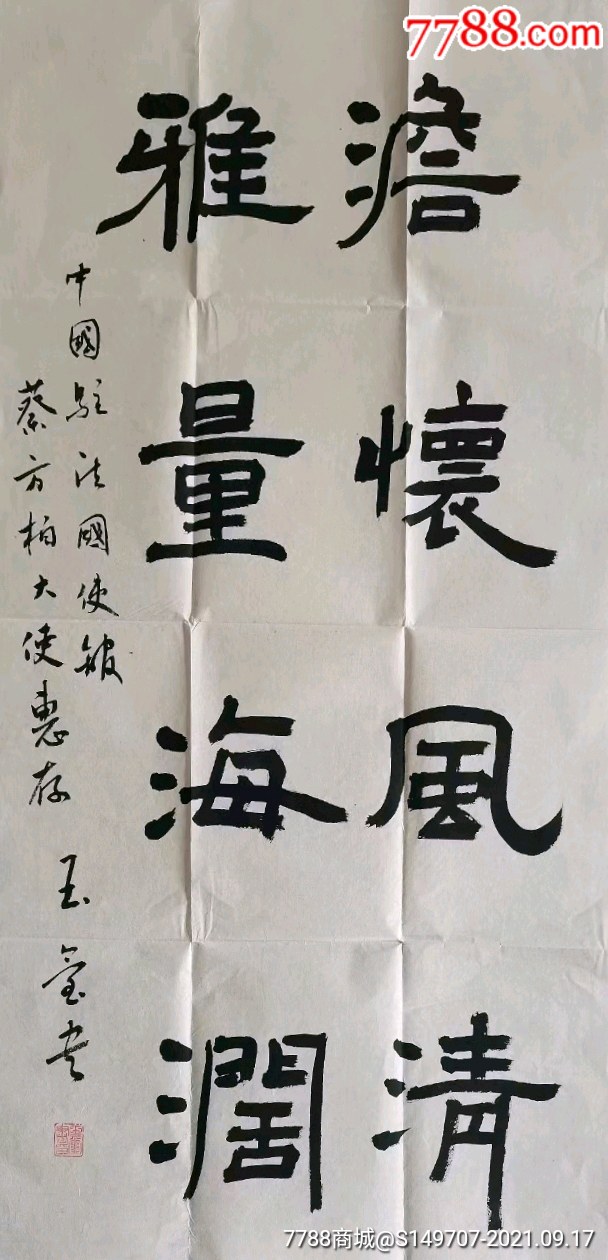 7788.com
澹懷風清
雅量海濶
中國駐法國使館
蔡方柏大使惠存
玉玺书
7788商城@S149707-2021.09.17